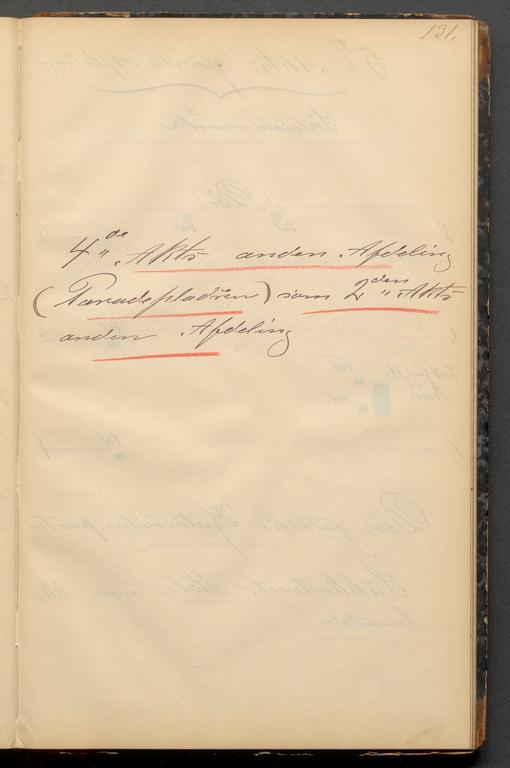 131.
4de Akts anden Afdeling
(Paradepladsen) som 2den Akts
anden Afdeling